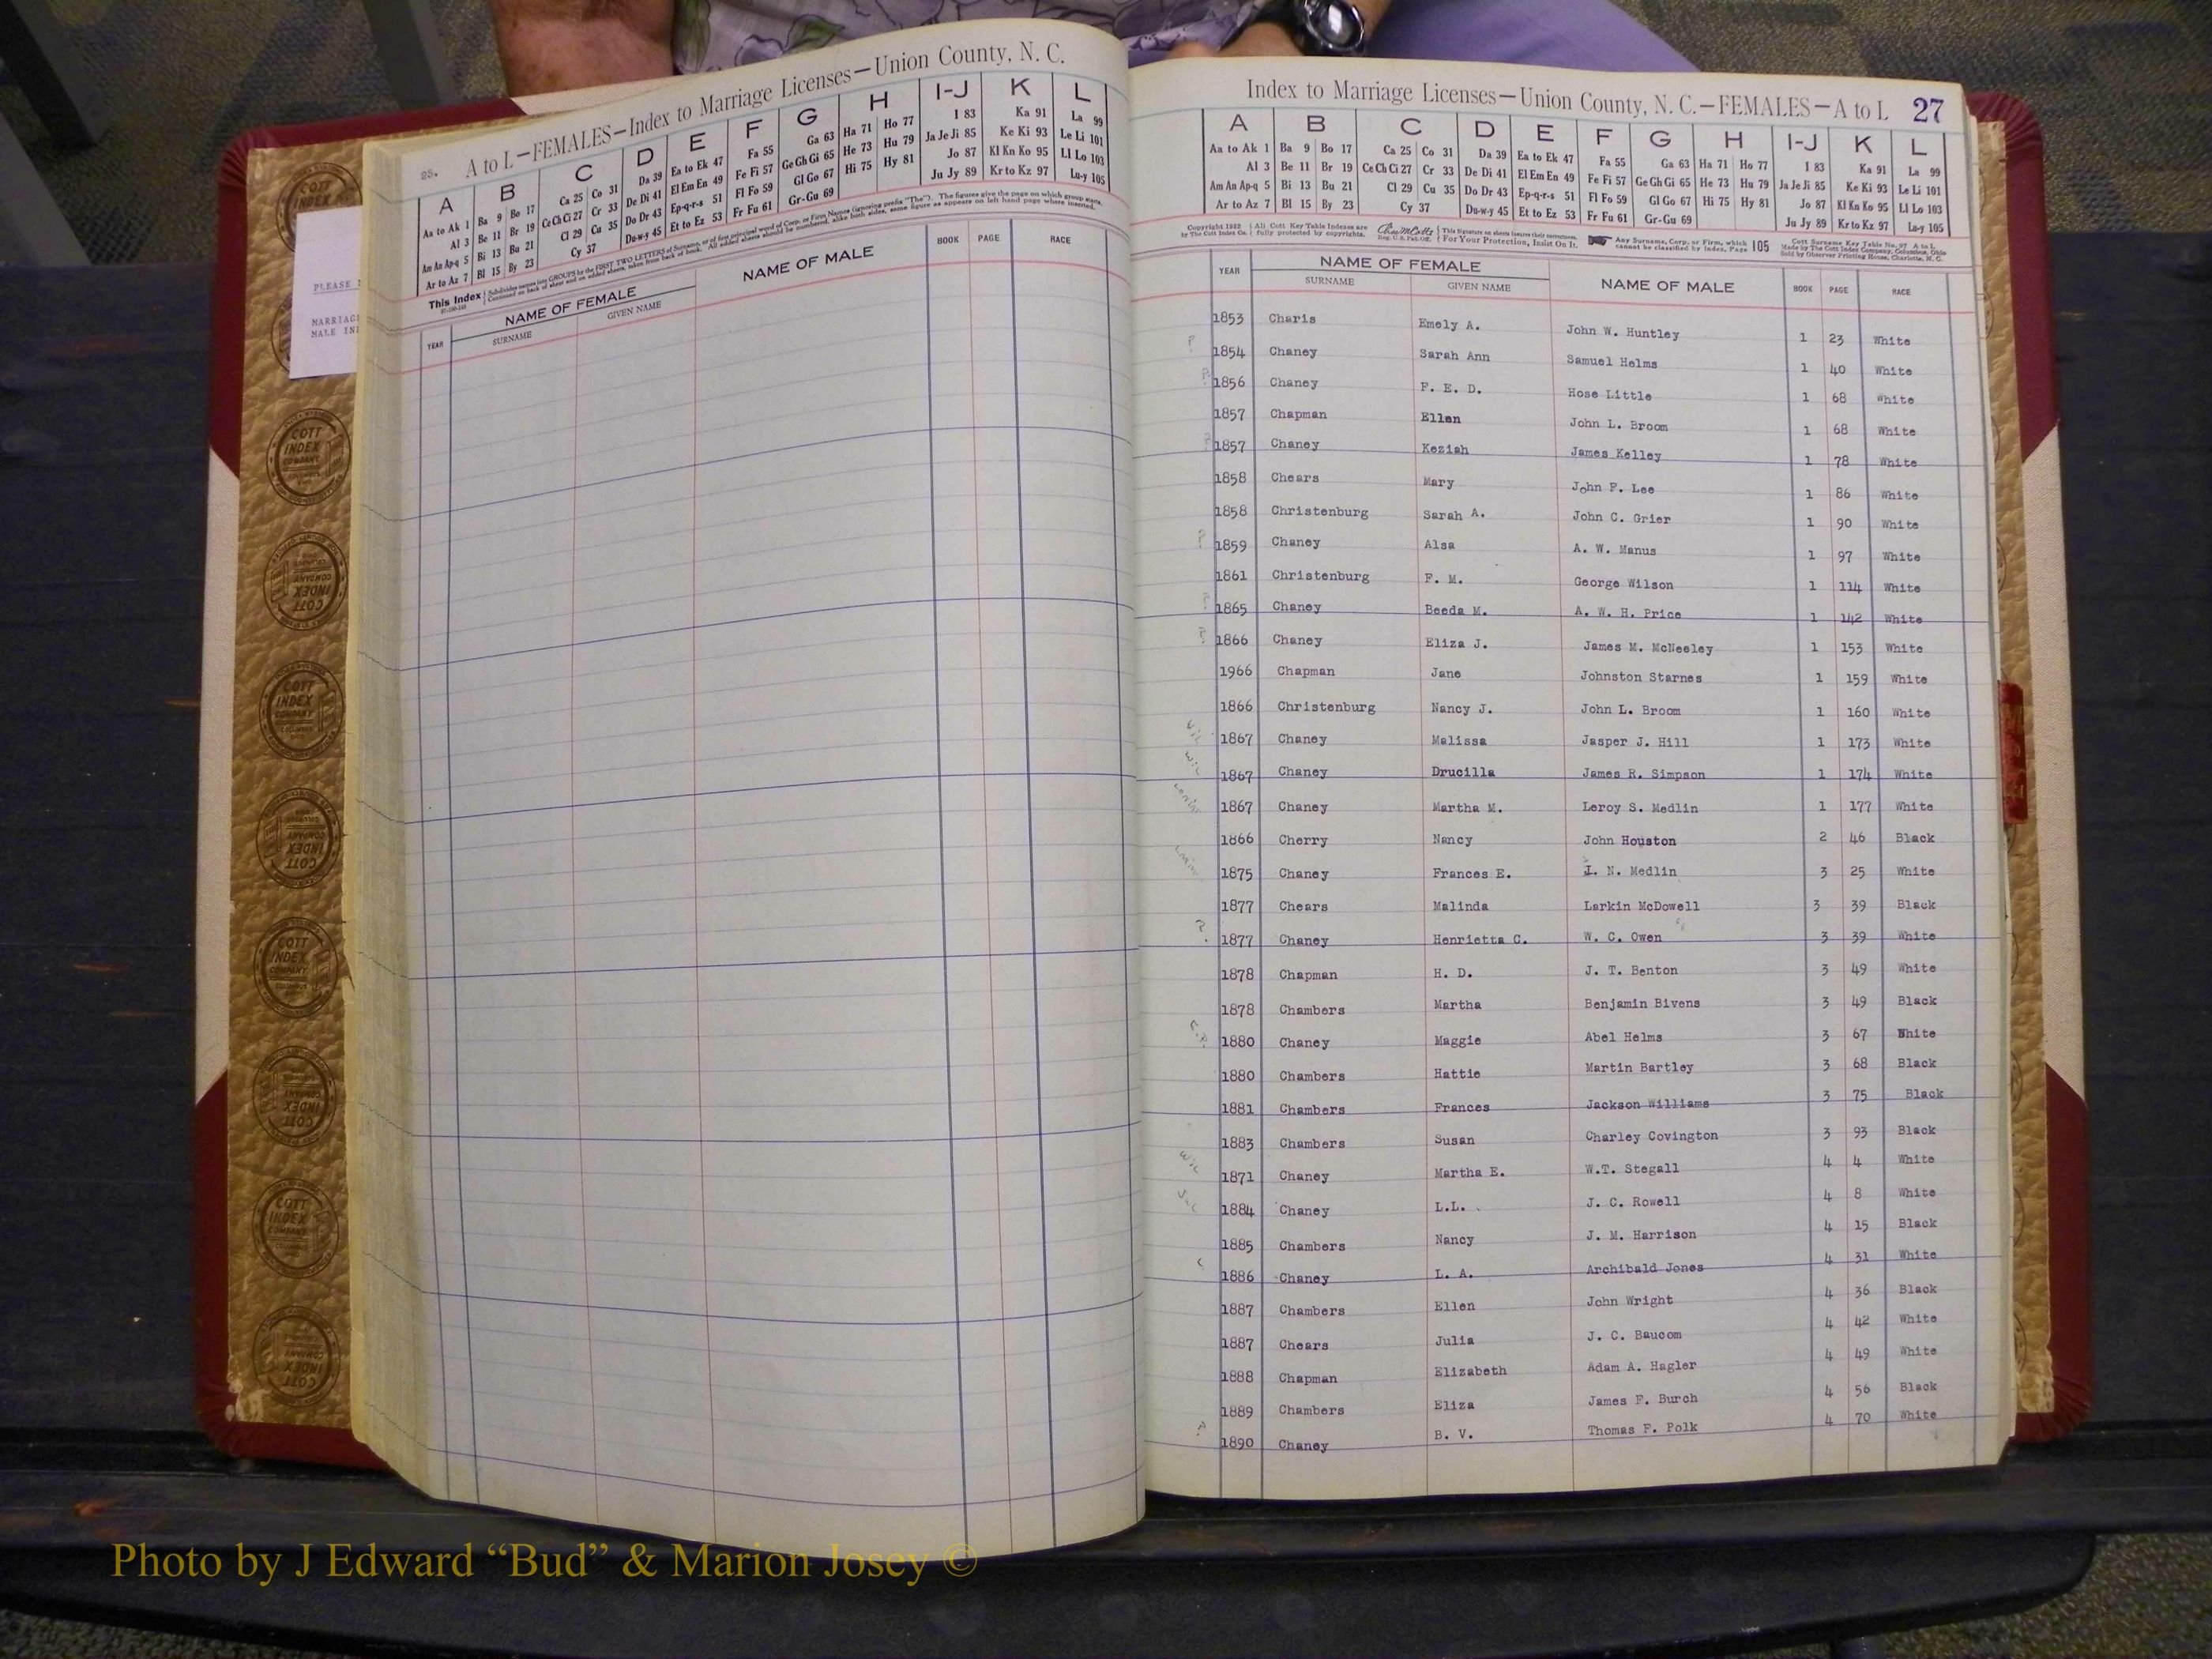 A to L—FEMALES—Index to Marriage Licenses—Union County, N. C.
25.
A B C D E F G H I-J K L
Aa to Ak 1 Ba 9 Bo 17 Ca 25 Co 31 Da 39 Ea to Ek 47 Fa 55 Ga 63 Ha 71 Ho 77 I 83 Ka 91 La 99
Al 3 Be 11 Br 19 Ce Ch Ci 27 Cr 33 De Di 41 El Em En 49 Fe Fi 57 Ge Gh Gi 65 He 73 Hu 79 Ja Je Ji 85 Ke Ki 93 Le Li 101
Am An Ap-q 5 Bi 13 Bu 21 Cl 29 Cu 35 Do Dr 43 Ep-q-r-s 51 Fl Fo 59 Gl Go 67 Hi 75 Hy 81 Jo 87 Kl Kn Ko 95 Ll Lo 103
Ar to Az 7 Bl 15 By 23 Cy 37 Du-w-y 45 Et to Ez 53 Fr Fu 61 Gr-Gu 69 Ju Jy 89 Kr to Kz 97 Lu-y 105
This Index
YEAR NAME OF FEMALE NAME OF MALE BOOK PAGE RACE
SURNAME GIVEN NAME
COTT INDEX COMPANY
PLEASE
MARRIAG
MALE IN
Index to Marriage Licenses—Union County, N. C.—FEMALES—A to L 27
A B C D E F G H I-J K L
Aa to Ak 1 Ba 9 Bo 17 Ca 25 Co 31 Da 39 Ea to Ek 47 Fa 55 Ga 63 Ha 71 Ho 77 I 83 Ka 91 La 99
Al 3 Be 11 Br 19 Ce Ch Ci 27 Cr 33 De Di 41 El Em En 49 Fe Fi 57 Ge Gh Gi 65 He 73 Hu 79 Ja Je Ji 85 Ke Ki 93 Le Li 101
Am An Ap-q 5 Bi 13 Bu 21 Cl 29 Cu 35 Do Dr 43 Ep-q-r-s 51 Fl Fo 59 Gl Go 67 Hi 75 Hy 81 Jo 87 Kl Kn Ko 95 Ll Lo 103
Ar to Az 7 Bl 15 By 23 Cy 37 Du-w-y 45 Et to Ez 53 Fr Fu 61 Gr-Gu 69 Ju Jy 89 Kr to Kz 97 Lu-y 105
For Your Protection, Insist On It.
Any Surname, Corp. or Firm, which cannot be classified by Index, Page 105
YEAR NAME OF FEMALE NAME OF MALE BOOK PAGE RACE
SURNAME GIVEN NAME
1853 Charis Emely A. John W. Huntley 1 23 White
? 1854 Chaney Sarah Ann Samuel Helms 1 40 White
? 1856 Chaney F. E. D. Hose Little 1 68 White
1857 Chapman Ellen John L. Broom 1 68 White
? 1857 Chaney Keziah James Kelley 1 78 White
1858 Chears Mary John F. Lee 1 86 White
1858 Christenburg Sarah A. John C. Grier 1 90 White
? 1859 Chaney Alsa A. W. Manus 1 97 White
1861 Christenburg F. M. George Wilson 1 114 White
? 1865 Chaney Beeda M. A. W. H. Price 1 142 White
? 1866 Chaney Eliza J. James M. McNeeley 1 153 White
1966 Chapman Jane Johnston Starnes 1 159 White
1866 Christenburg Nancy J. John L. Broom 1 160 White
1867 Chaney Melissa Jasper J. Hill 1 173 White
1867 Chaney Drucilla James R. Simpson 1 174 White
1867 Chaney Martha M. Leroy S. Medlin 1 177 White
1866 Cherry Nancy John Houston 2 46 Black
1875 Chaney Frances E. I. N. Medlin 3 25 White
1877 Chears Malinda Larkin McDowell 3 39 Black
? 1877 Chaney Henrietta C. W. C. Owen 3 39 White
1878 Chapman H. D. J. T. Benton 3 49 White
1878 Chambers Martha Benjamin Bivens 3 49 Black
1880 Chaney Maggie Abel Helms 3 67 White
1880 Chambers Hattie Martin Bartley 3 68 Black
1881 Chambers Frances Jackson Williams 3 75 Black
1883 Chambers Susan Charley Covington 3 93 Black
1871 Chaney Martha E. W.T. Stegall 4 4 White
1884 Chaney L.L. J. C. Rowell 4 8 White
1885 Chambers Nancy J. M. Harrison 4 15 Black
1886 Chaney L. A. Archibald Jones 4 31 White
1887 Chambers Ellen John Wright 4 36 Black
1887 Chears Julia J. C. Baucom 4 42 White
1888 Chapman Elizabeth Adam A. Hagler 4 49 White
1889 Chambers Eliza James F. Burch 4 56 Black
? 1890 Chaney B. V. Thomas F. Polk 4 70 White
Photo by J Edward “Bud” & Marion Josey ©